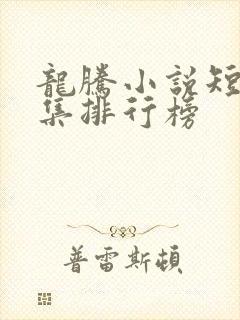 龍騰小說短
集排行榜
普雷斯頓